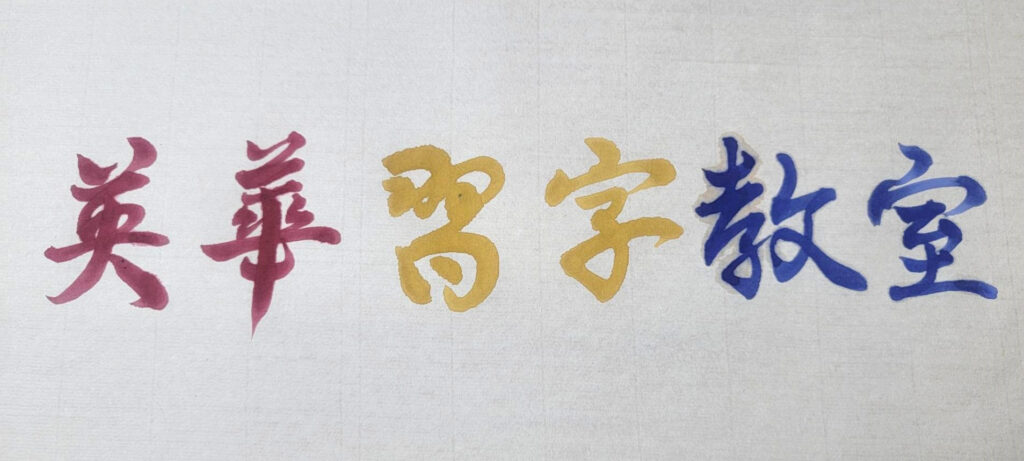 英華習字教室